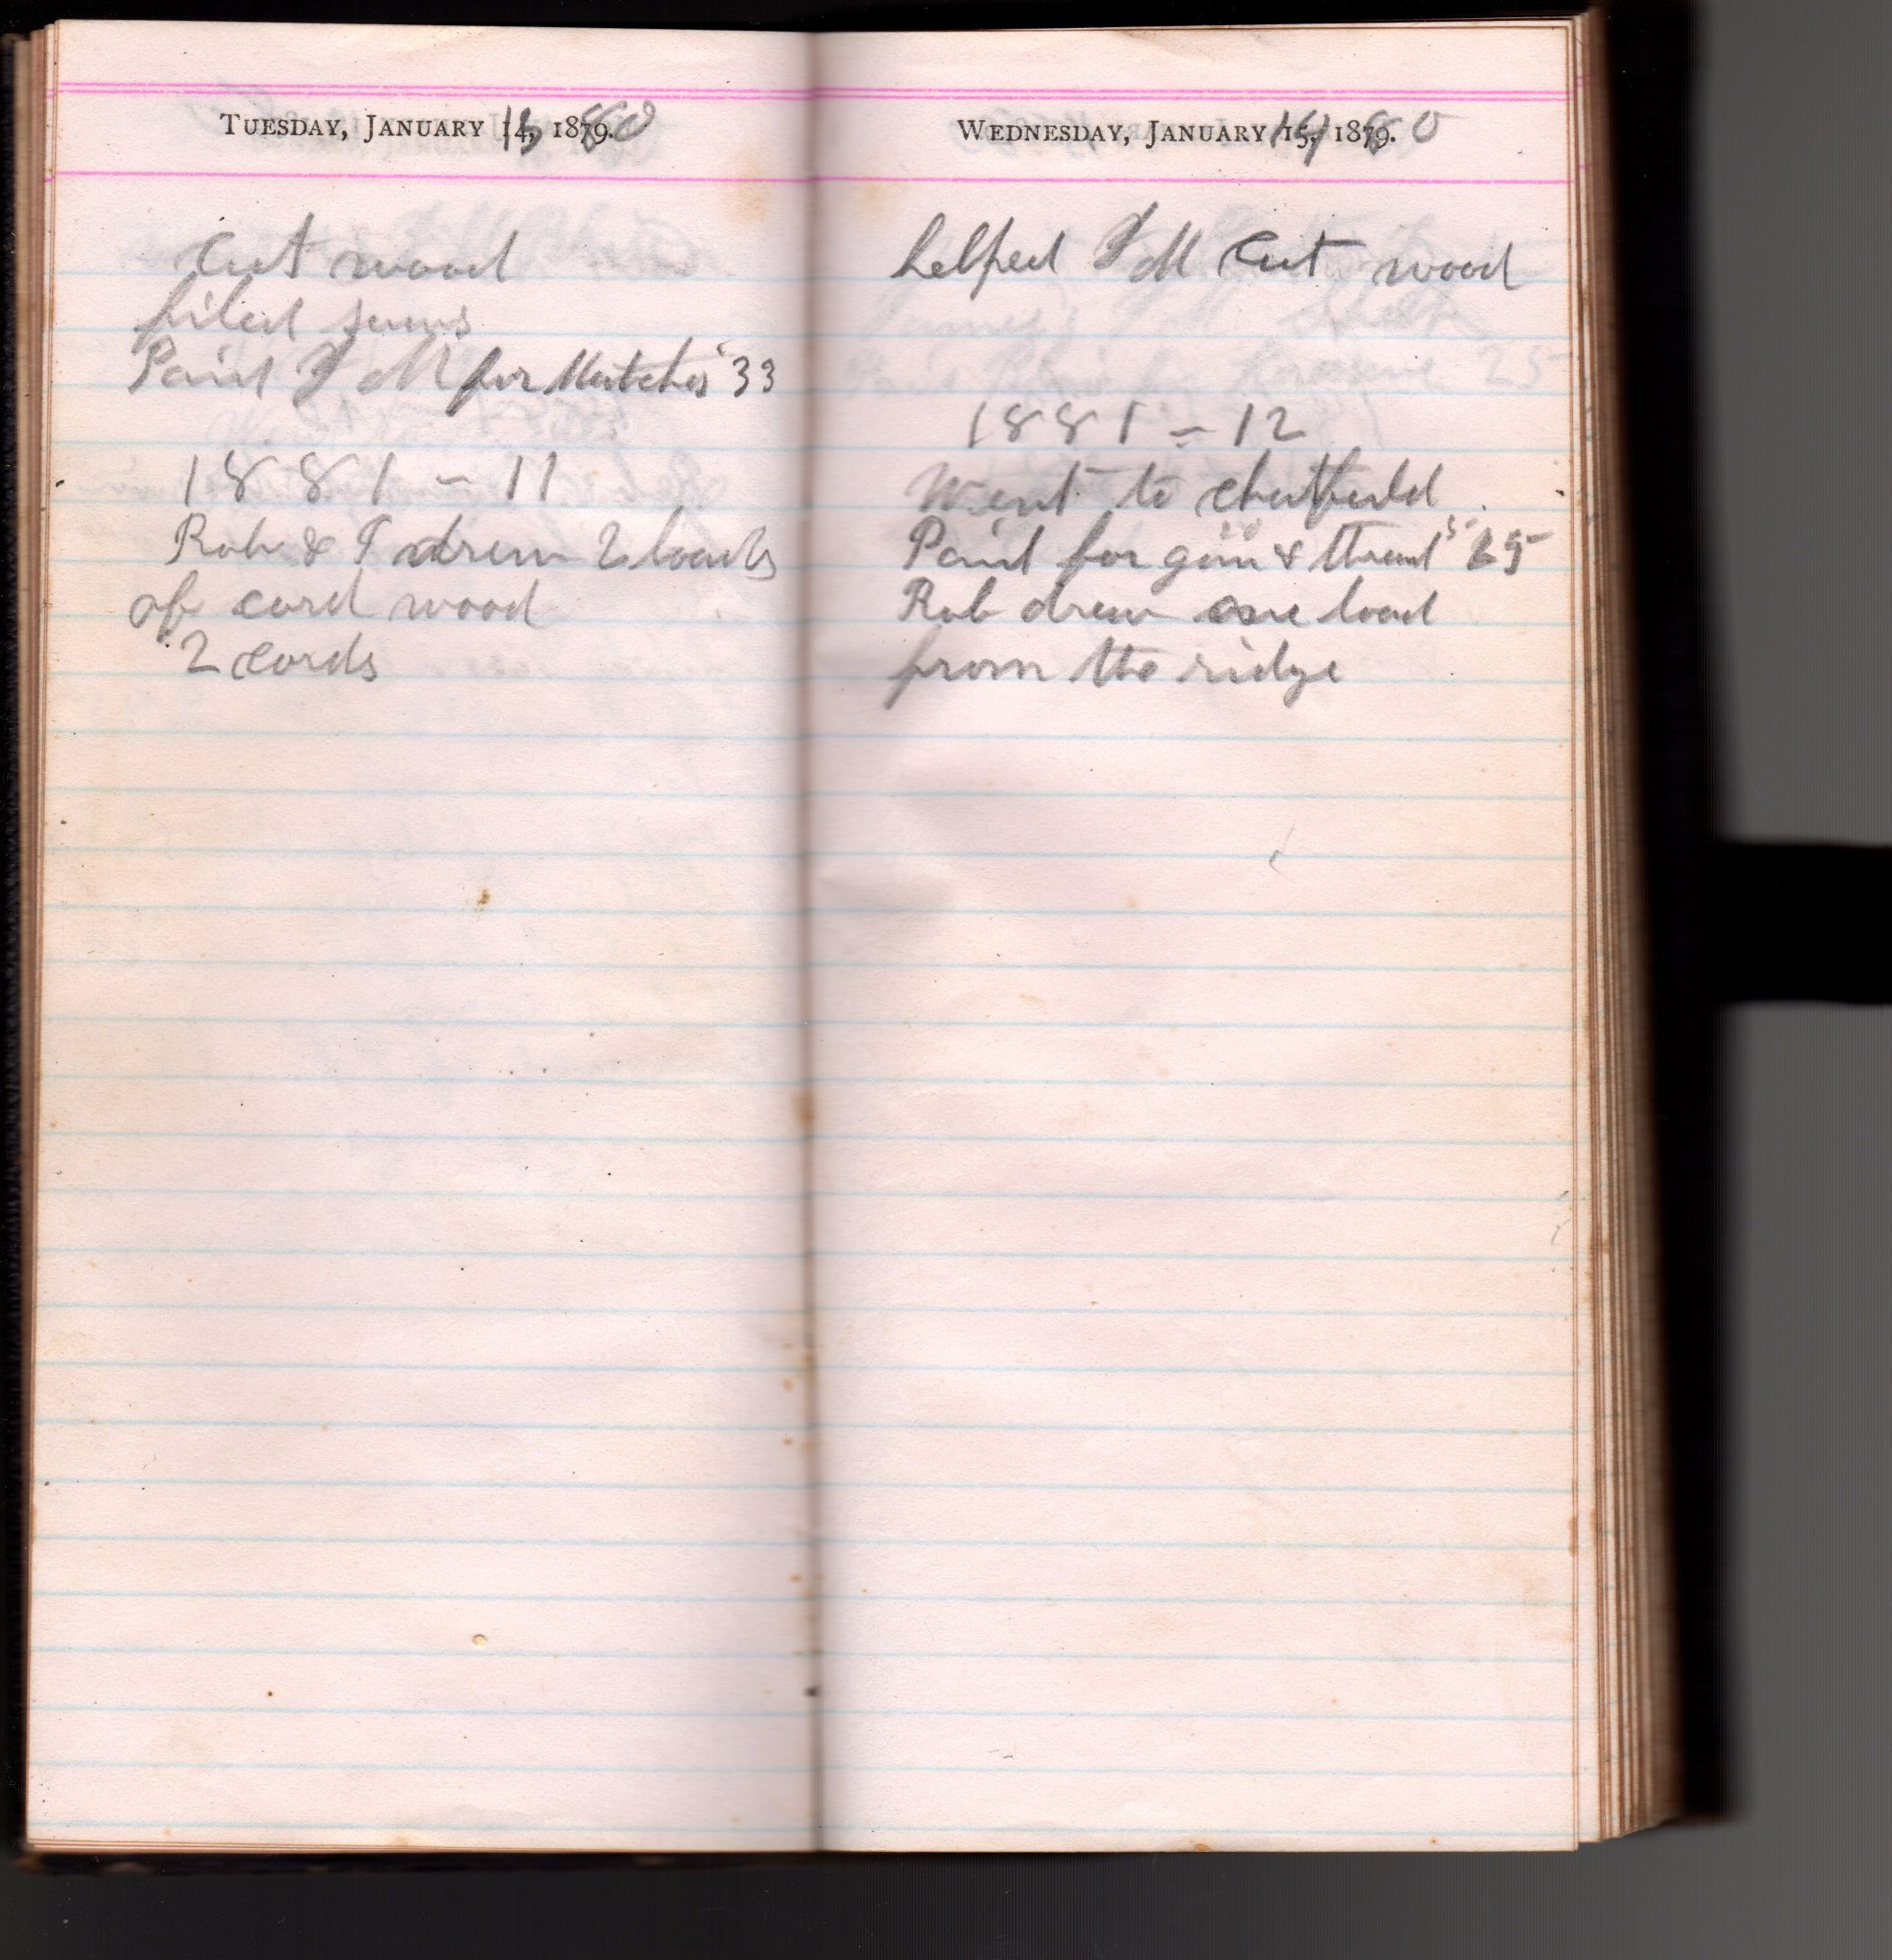 TUESDAY, JANUARY 14, 1879. 13 80
cut wood
filed saws
Paid F M for Matches 33
1881 - 11
Rob & I drew 2 loads
of cord wood
2 cords
WEDNESDAY, JANUARY 15, 1879. 14 80
helped F M cut wood
1881 - 12
Went to chatfield
Paid for gum & thread
Rob drew one load
from the ridge